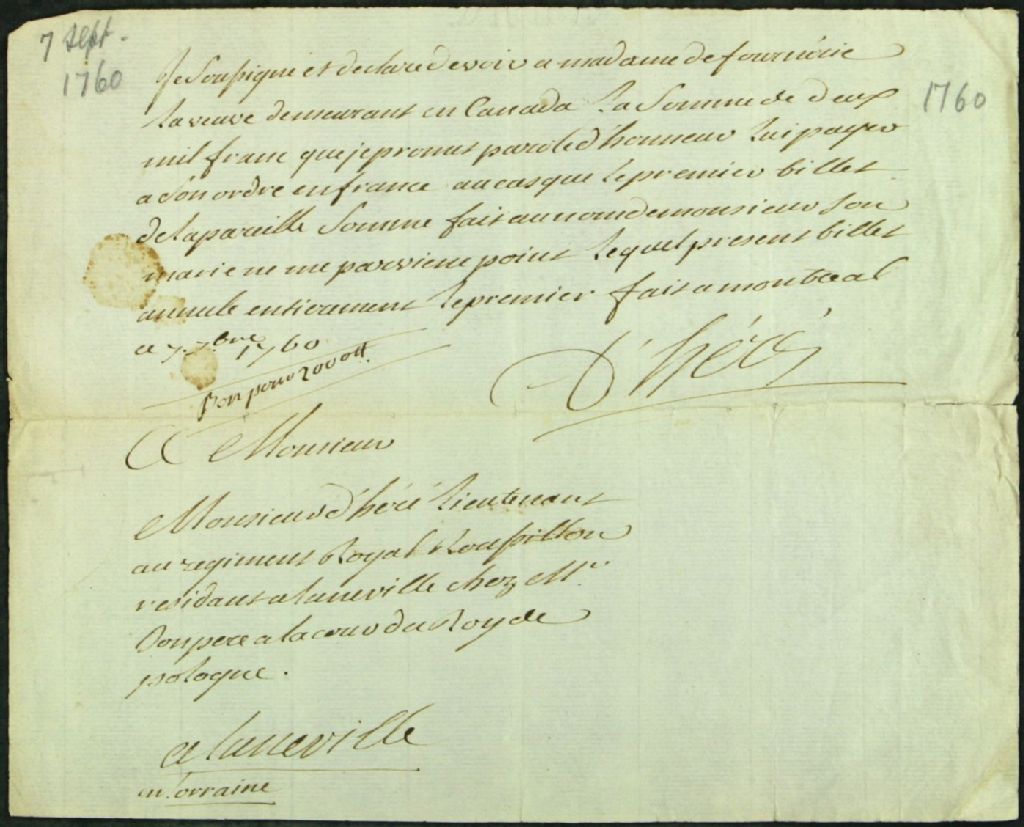 7 Sept.
1760
1760
Je Soussigne et declare devoir a madame de fournerie
la veuve demeurant en Canada la Somme de deux
mil franc que je promet parole d'honneur lui payer
a Son ordre en france au cas que le premier billet
de la pareille Somme fait au nom de monsieur Son
marie ne me parviene point lequel present billet
annule entierement le premier fait a montreal
ce 7 7bre 1760
D'héré
Bon pour 2000tt
A Monsieur
Monsieur d'héré lieutenant
au regiment Royal Roussillon
residant a laneville chez Mr.
Son pere a la cour du Roy de
pologne.
a laneville
en Lorraine